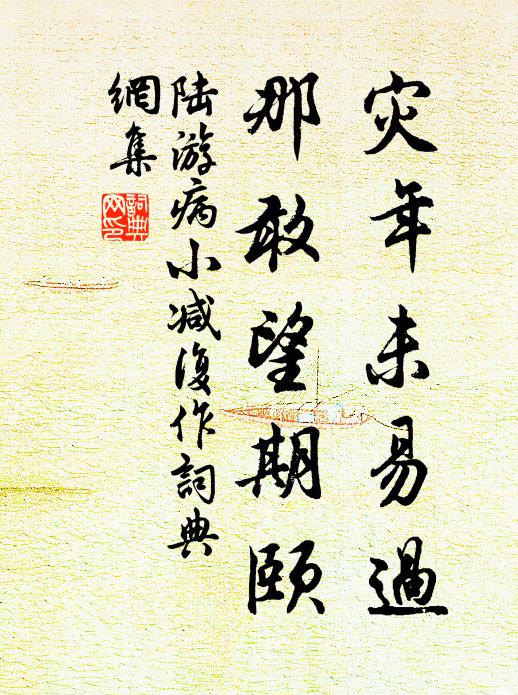 灾年未易過
那敢望期頤
陆游病小减復作詞典
網集
詞典
网印